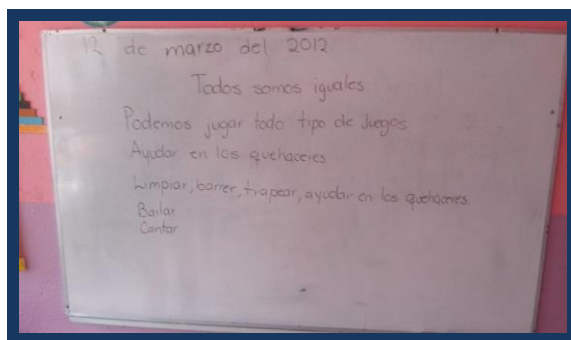 12 de marzo del 2012.
Todos somos iguales
Podemos jugar todo tipo de Juegos
Ayudar en los quehaceres
Limpiar, barrer, trapear, ayudar en los quehaceres.
Bailar
Cantar